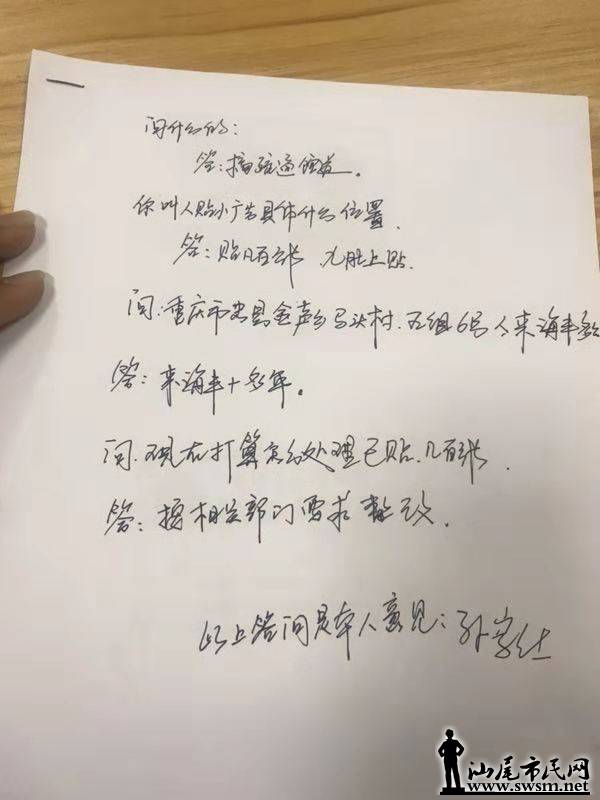 问什么的:
答:搞疏通管道。
你叫人贴小广告具体什么位置.
答:贴几百张 九肚上贴.
问:重庆市忠县金声乡马头村.五组6号 来海丰多
答:来海丰十多年。
问.现在打算怎么处理已贴几百张.
答:按相关部门要求整改.
以上答问是本人意见:孙
汕尾市民网
www.swsm.net